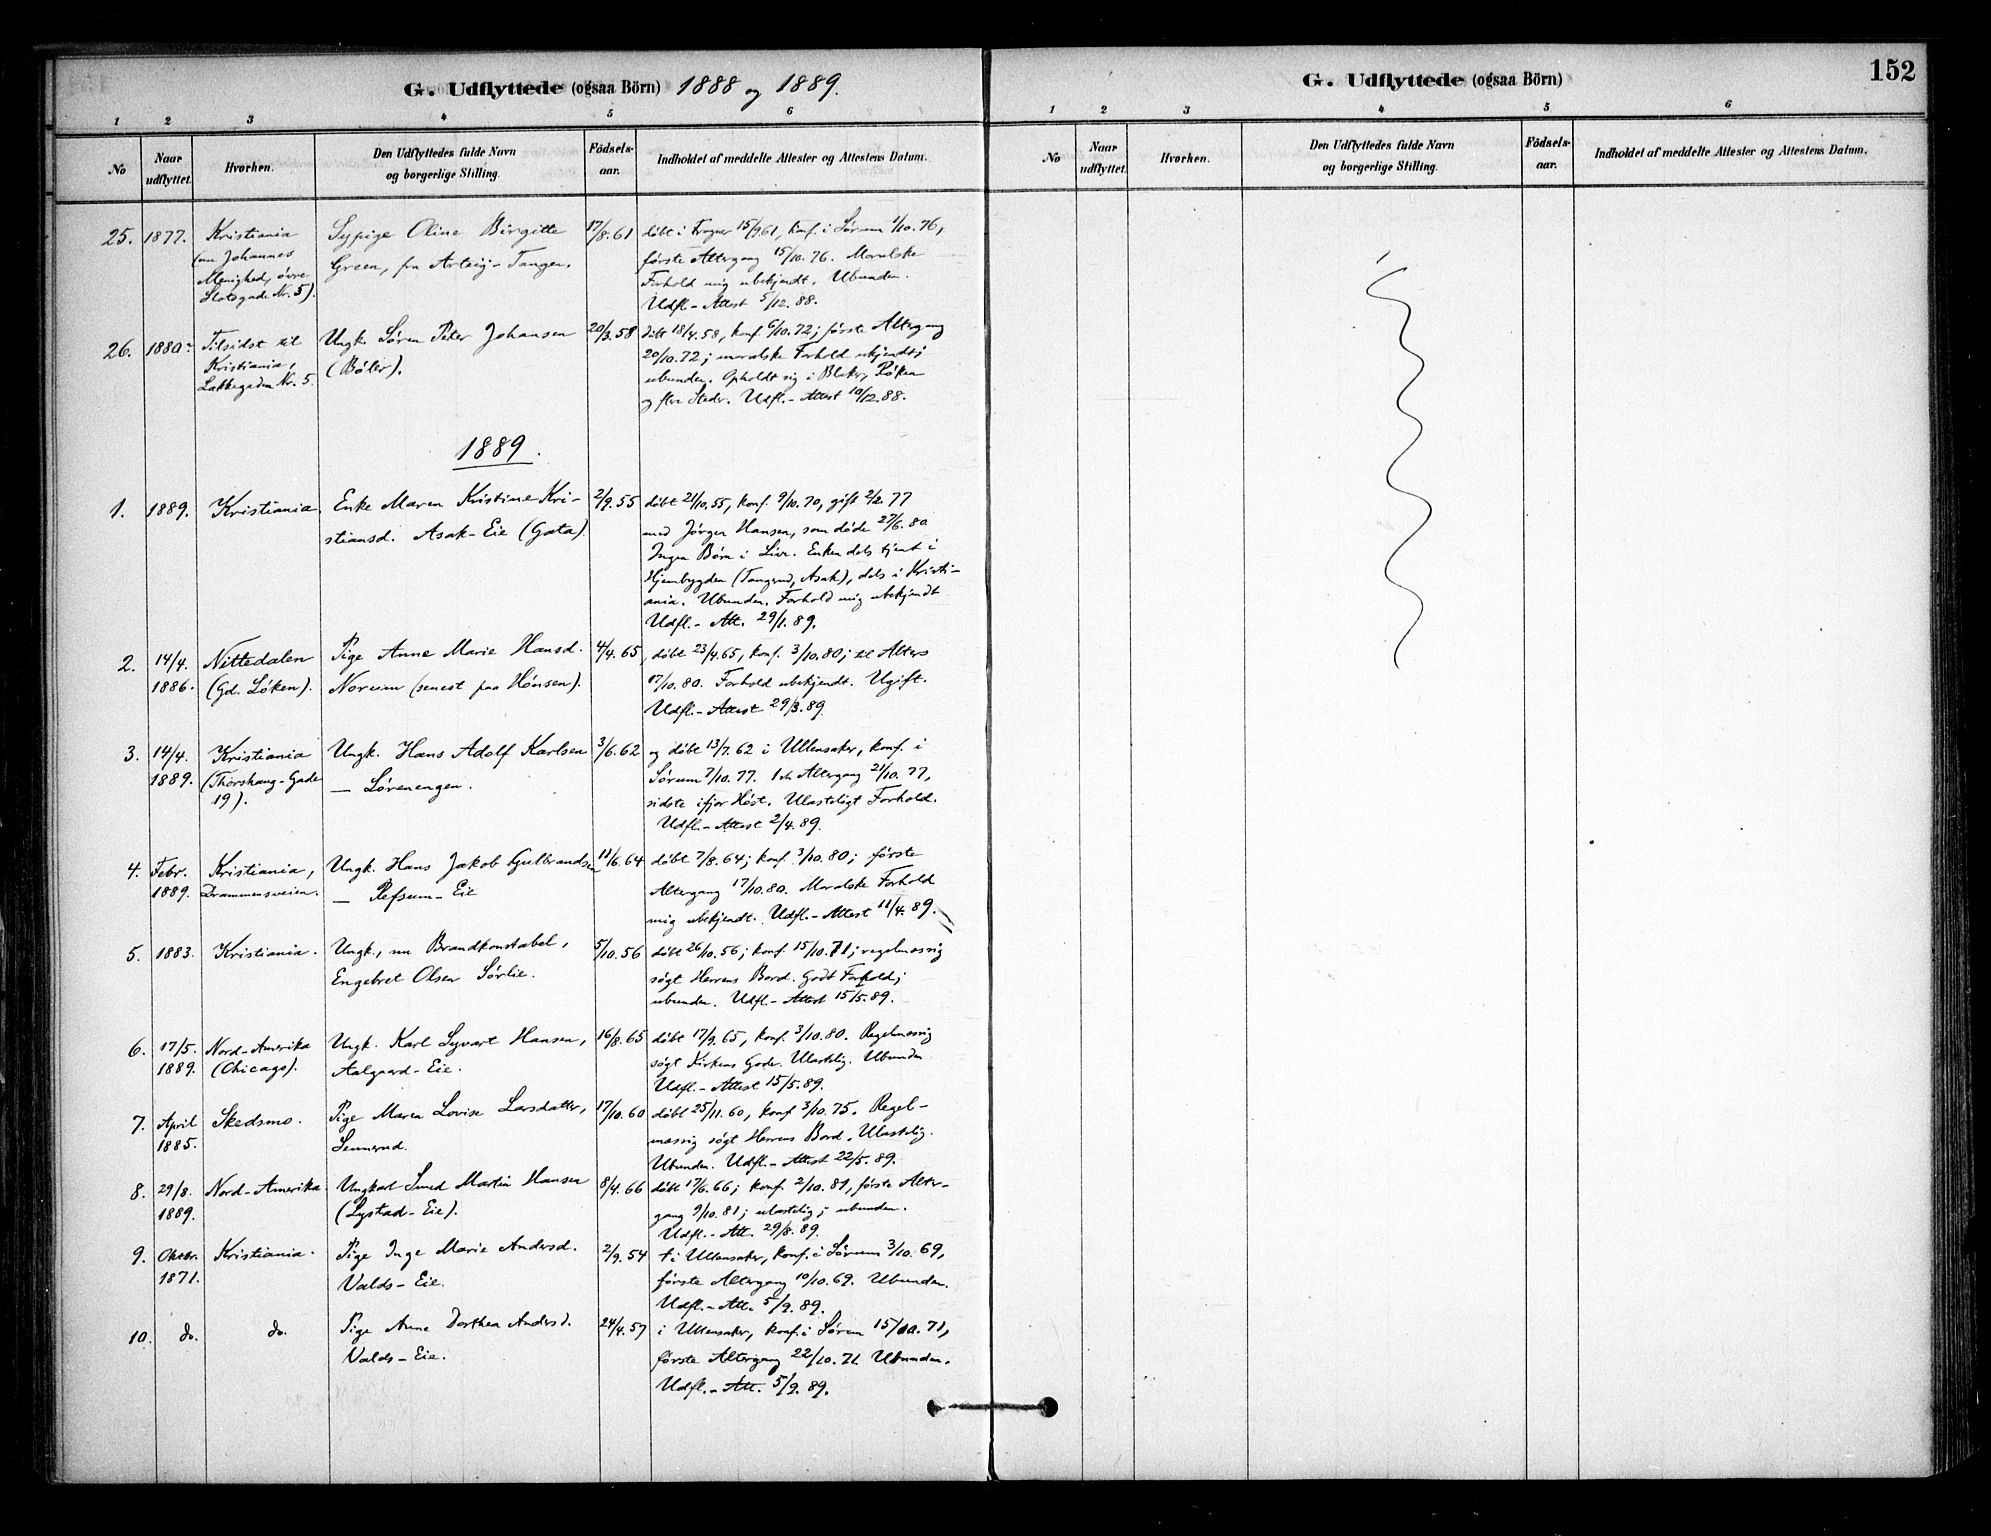 G. Udflyttede (ogsaa Börn) 1888 og 1889.
1 2 3 4 5 6
No
Naar udflyttet.
Hvorhen.
Den Udflyttedes fulde Navn
og borgerlige Stilling.
Födsels-
aar.
Indholdet af meddelte Attester og Attestens Datum.
25. 1877. Kristiania
(nu Johannes
Menighed, övre
Slotsgade Nr. 5).
Sypige Oline Birgitte
Green, fra Arteig-Tangen.
17/8.61
döbt i Frogner 15/9.61, konf. i Sørum 1/10.76,
første Altergang 15/10.76. Moralske
Forhold mig ubekjendt. Ubunden.
Udfl.-Attest 5/12.88.
26. 1880- Tilsidst til
Kristiania,
Lakkegaden Nr. 5.
Ungk. Søren Peter Johansen
(Böler).
20/3.58
döbt 18/4.58, konf. 6/10.72; første Altergang
20/10.72; moralske Forhold ukjendt;
ubunden. Opholdt sig i Blaker, Röken
og flere Steder. Udfl.-Attest 10/12.88.
1889.
1. 1889. Kristiania.
Enke Maren Kristine Kri-
stiansd. Asak-Eie (Gata).
2/9.55
døbt 21/10.55, konf. 9/10.70, gift 2/2.77
med Jörgen Hansen, som døde 27/6.80
Ingen Børn i Live. Enken dels tjent i
Hjembygden (Tangerud, Asak), dels i Kristi-
ania. Ubunden. Forhold mig ubekjendt
Udfl.-Att. 29/1.89.
2. 14/4.
1886.
Nittedalen
(Gd. Löken).
Pige Anne Marie Hansd.
Noreim (senest paa Hönsen).
4/4.65
døbt 23/4.65, konf. 3/10.80; til Alters
17/10.80. Forhold ubekjendt. Ugift.
Udfl.-Attest 29/3.89.
3. 14/4.
1889.
Kristiania
(Thorshaug-Gade
19).
Ungk. Hans Adolf Karlsen
— Lörenengen.
3/6.62
og døbt 13/7.62 i Ullensaker, konf. i
Sørum 7/10.77. 1ste Altergang 21/10.77,
sidste ifjor Høst. Ulasteligt Forhold.
Udfl.-Attest 2/4.89.
4. Febr.
1889.
Kristiania,
Drammensveien.
Ungk. Hans Jakob Gulbrandsen
— Refsum-Eie
11/6.64
døbt 7/8.64; konf. 3/10.80; første
Altergang 17/10.80. Moralske Forhold
mig ubekjendt. Udfl.-Attest 11/4.89.
5. 1883. Kristiania.
Ungk., nu Brandkonstabel,
Engebret Olsen Sörlie.
5/10.56
døbt 26/10.56; konf. 15/10.71; regelmæssig
søgt Herrens Bord. Godt Forhold;
ubunden. Udfl.-Attest 15/5.89.
6. 17/5.
1889.
Nord-Amerika
(Chicago).
Ungk. Karl Syvart Hansen,
Aalgaard-Eie.
16/8.65
døbt 17/9.65, konf. 3/10.80. Regelmæssig
søgt Kirkens Goder. Ulastelig. Ubunden
Udfl.-Attest 15/5.89.
7. April
1885.
Skedsmo.
Pige Maren Lovise Larsdatter,
Sennerud.
17/10.60
døbt 25/11.60, konf. 3/10.75. Regel-
mæssig søgt Herrens Bord. Ulastelig.
Ubunden. Udfl.-Attest 22/5.89.
8. 29/8.
1889.
Nord-Amerika.
Ungkarl Smed Martin Hansen
(Lystad-Eie).
8/4.66
døbt 17/6.66; konf. 2/10.81, første Alter-
gang 9/10.81; ulastelig; ubunden.
Udfl.-Att. 29/8.89.
9. Oktbr.
1871.
Kristiania.
Pige Inge Marie Andersd.
Valds-Eie.
2/9.54
i Ullensaker, konf. i Sørum 3/10.69,
første Altergang 10/10.69. Ubunden.
Udfl.-Att. 5/9.89.
10. do. do.
Pige Anne Dorthea Andersd.
Valds-Eie.
24/4.57
i Ullensaker, konf. i Sørum 15/10.71,
første Altergang 22/10.71. Ubunden.
Udfl.-Att. 5/9.89.
G. Udflyttede (ogsaa Börn)
152
1 2 3 4 5 6
No
Naar udflyttet.
Hvorhen.
Den Udflyttedes fulde Navn
og borgerlige Stilling.
Födsels-
aar.
Indholdet af meddelte Attester og Attestens Datum.